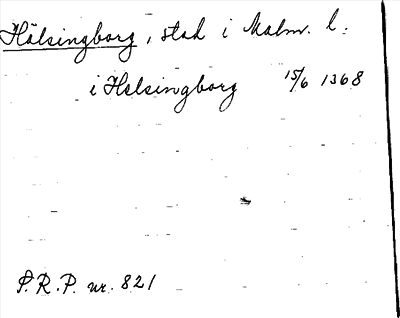 Hälsingborg, stad i Malm. l:
i Helsingborg 15/6 1368
P.R.P. nr. 821